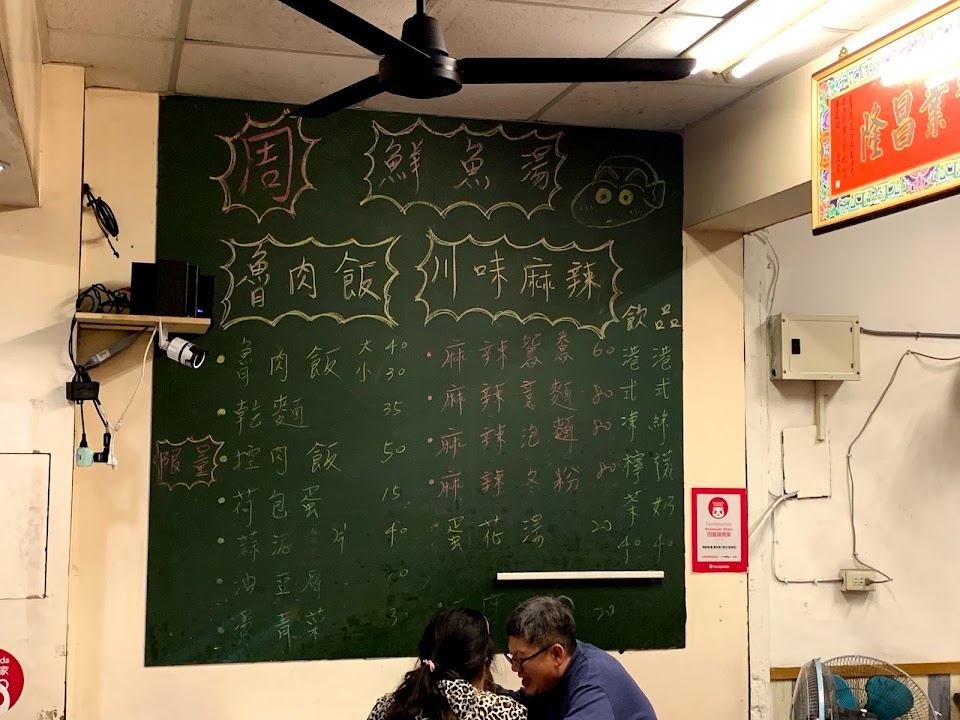 周
鮮魚湯
魯肉飯
川味麻辣
飲品
魯肉飯 大40
小30
乾麵 35
限量
控肉飯 50
荷包蛋 15
蒜泥 片 40
油豆腐
青菜 30
麻辣鴛鴦 60
麻辣意麵 80
麻辣泡麵 80
麻辣冬粉 80
蛋花湯 20
港式凍檸茶 40
港式絲襪奶 40
業昌隆
foodpanda